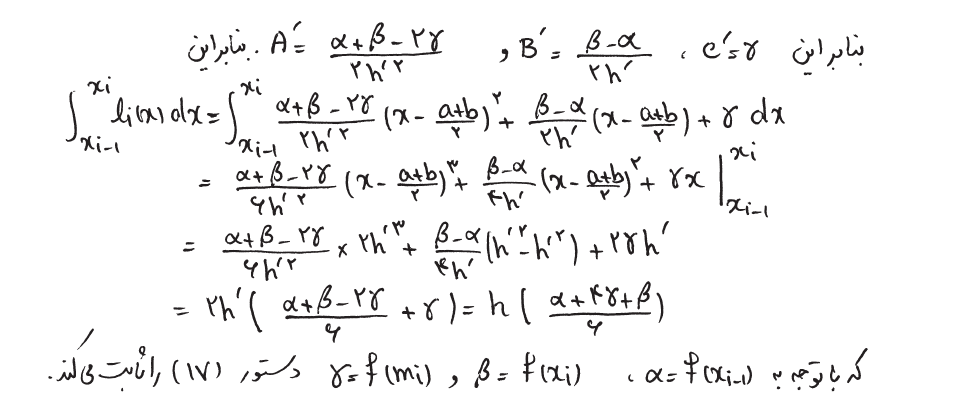 بنابراین C′=γ ، B′= (β-α)/(۲h′) و A′= (α+β-۲γ)/(۲h′^۲) . بنابراین
∫_{x_{i-1}}^{x_i} l_i(x) dx = ∫_{x_{i-1}}^{x_i} (α+β-۲γ)/(۲h′^۲) (x - (a+b)/۲)^۲ + (β-α)/(۲h′) (x - (a+b)/۲) + γ dx
= (α+β-۲γ)/(۶h′^۲) (x - (a+b)/۲)^۳ + (β-α)/(۴h′) (x - (a+b)/۲)^۲ + γx |_{x_{i-1}}^{x_i}
= (α+β-۲γ)/(۶h′^۲) × ۲h′^۳ + (β-α)/(۴h′) (h′^۲ - h′^۲) + ۲γh′
= ۲h′ ( (α+β-۲γ)/۶ + γ ) = h ( (α+۴γ+β)/۶ )
که با توجه به α=f(x_{i-1}) ، β=f(x_i) و γ=f(m_i) دستور (۱۷) را ثابت می‌کند.